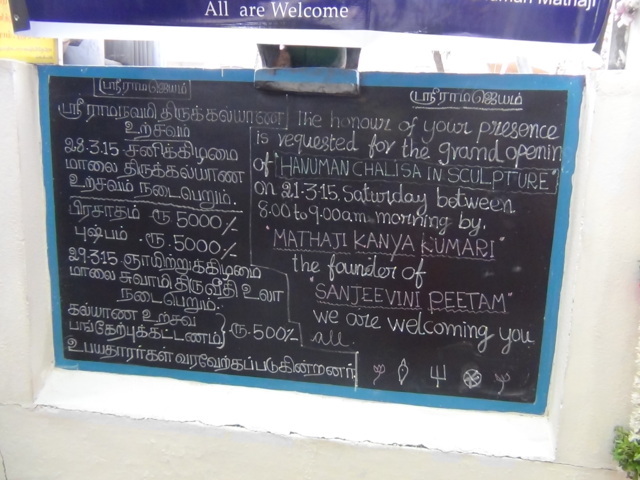 All are Welcome
Mathaji
ஸ்ரீராமஜெயம்
ஸ்ரீ ராமநவமி திருக்கல்யாண
உற்சவம்
28.3.15 சனிக்கிழமை
மாலை திருக்கல்யாண
உற்சவம் நடைபெறும்.
பிரசாதம் ரூ 5000/-
புஷ்பம் ரூ. 5000/-
29.3.15 ஞாயிற்றுக்கிழமை
மாலை சுவாமி திருவீதி உலா
நடைபெறும்.
கல்யாண உற்சவ
பங்கேற்புக்கட்டணம் } ரூ.500/-
உபயதாரர்கள் வரவேற்கப்படுகின்றனர்
ஸ்ரீராமஜெயம்
The honour of your presence
is requested for the grand opening
of "HANUMAN CHALISA IN SCULPTURE"
on 21.3.15. Saturday between
8.00 to 9.00am morning by.
"MATHAJI KANYA KUMARI"
the founder of
"SANJEEVINI PEETAM"
we are welcoming you
all.